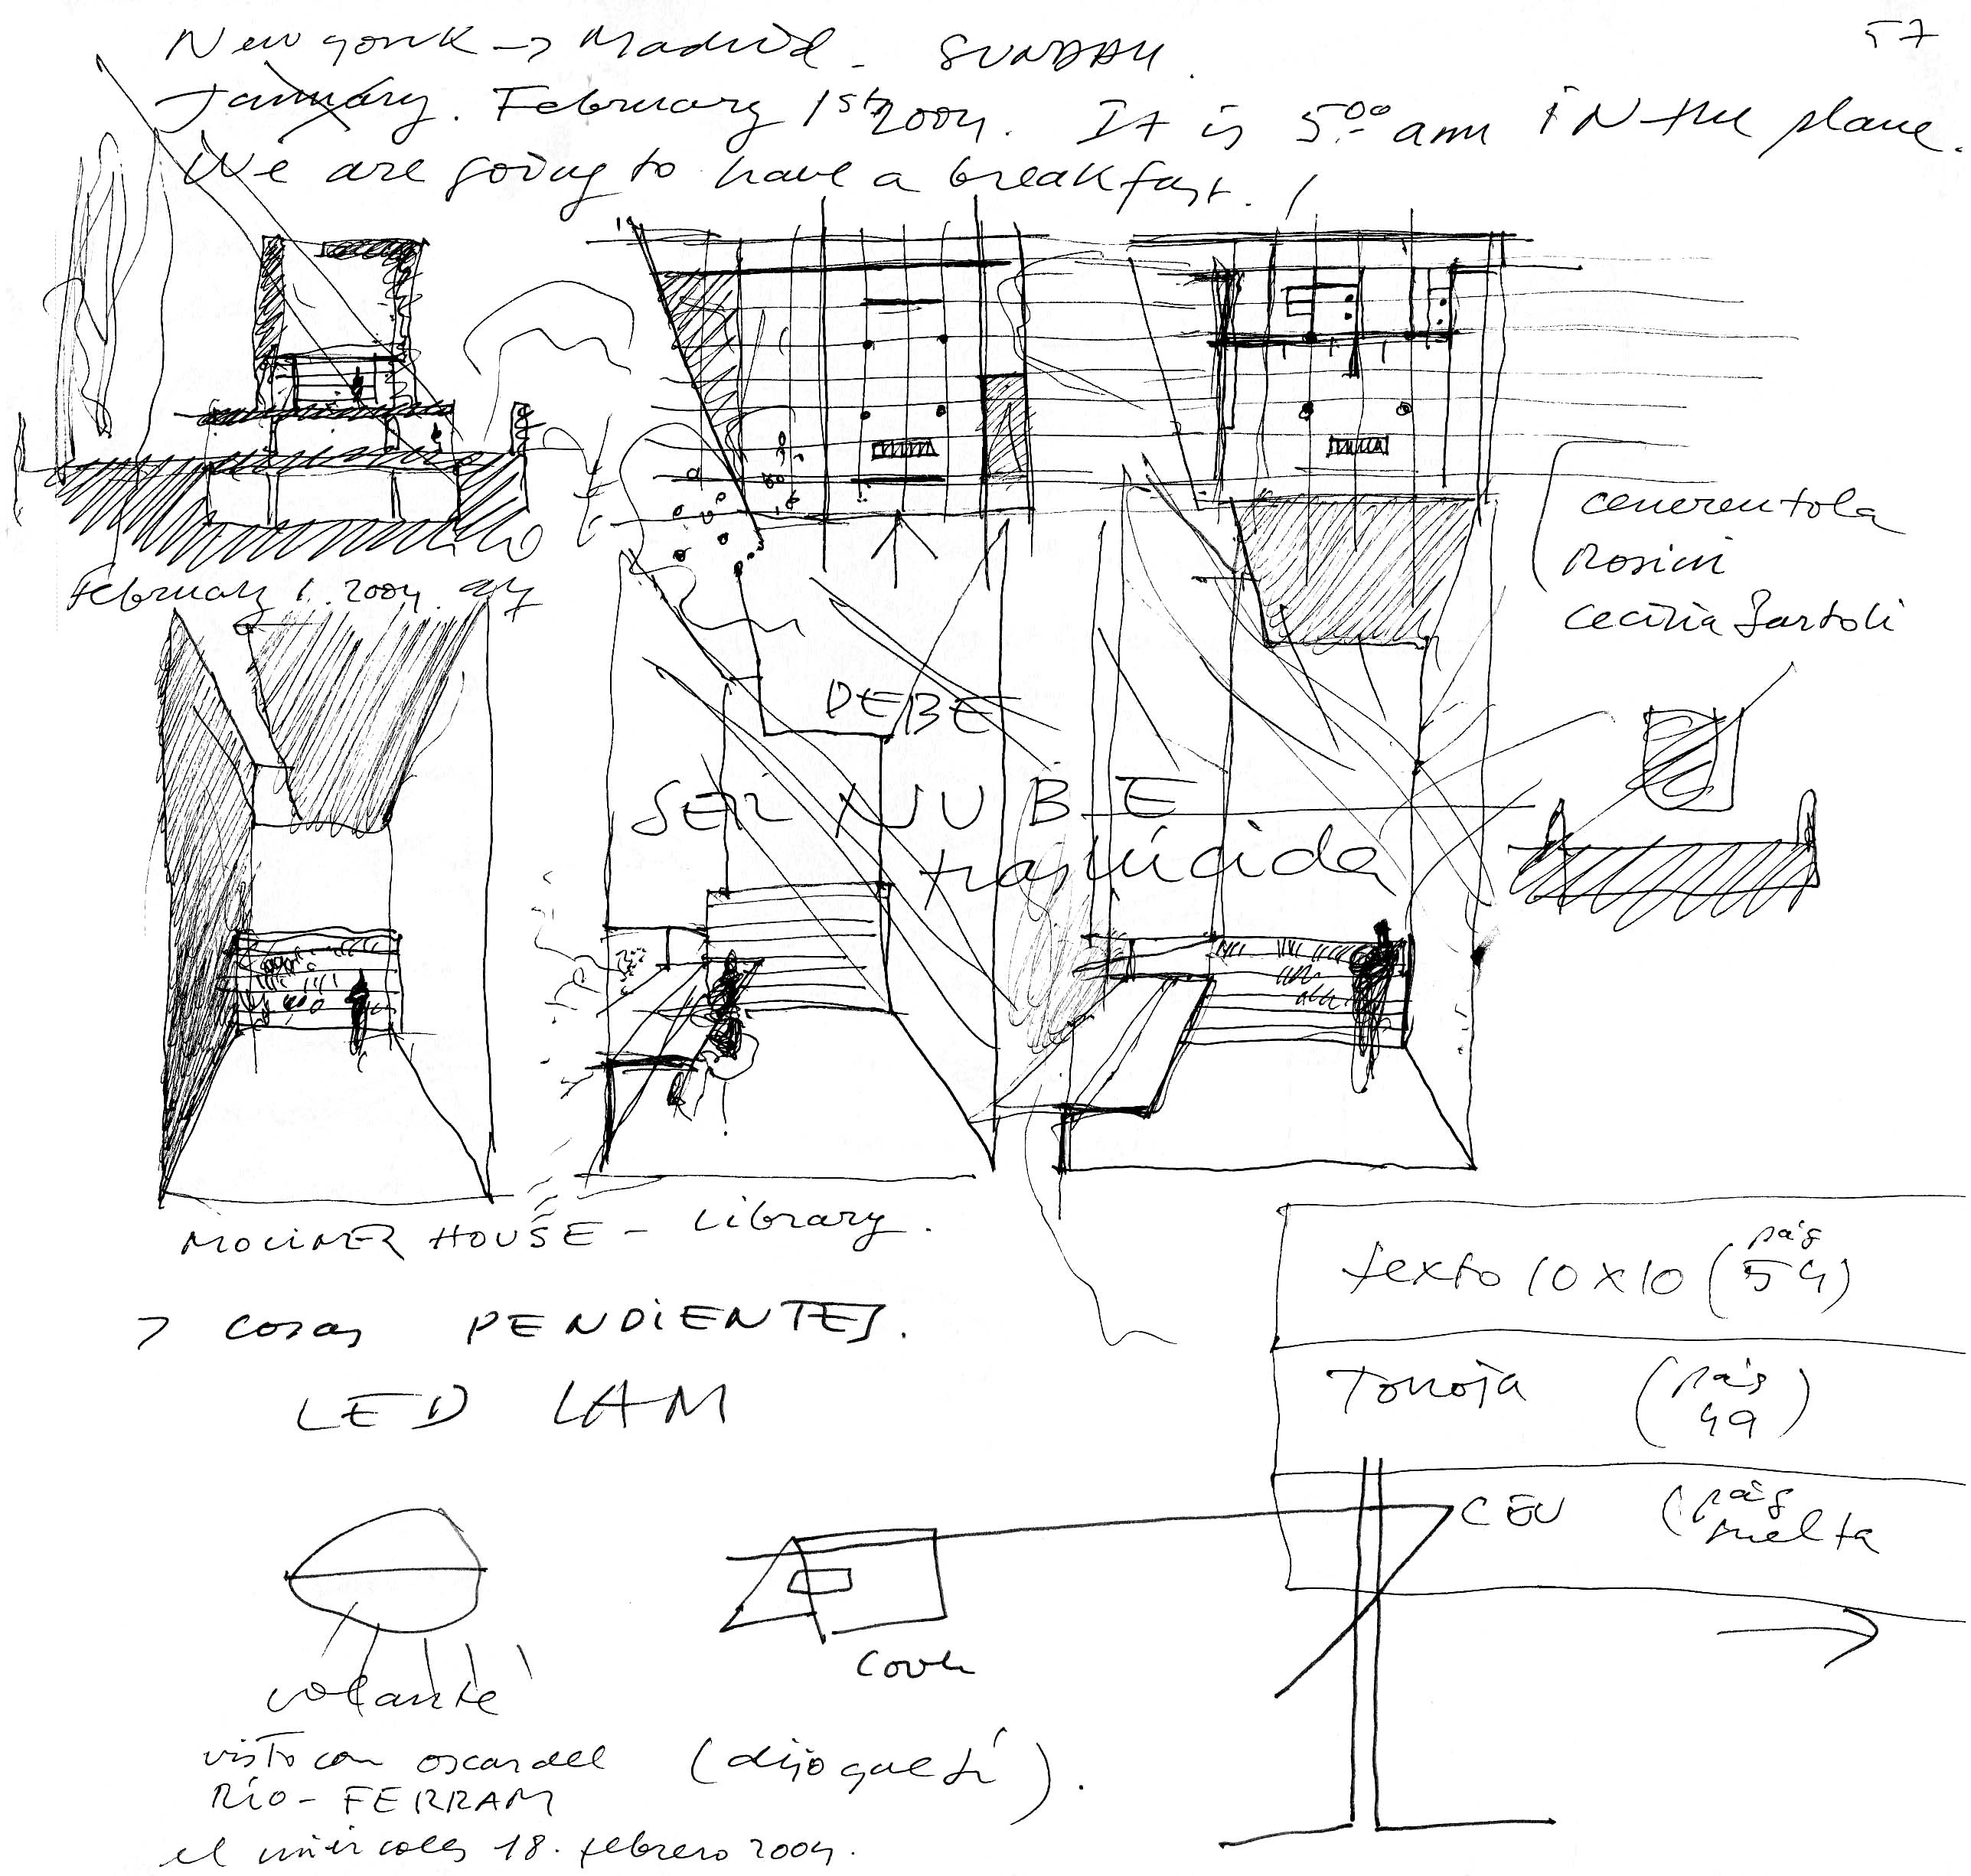 57
New york → Madrid - SUNDAY.
January. February 1st 2004. It is 5:00 am iN the plane.
We are going to have a breakfast. /
cenerentola
Rosini
Cecilia Bartoli
February 1. 2004.
DEBE
SER NUBE
traslúcida
MOLINER HOUSE - Library.
> cosas PENDIENTES.
LED LAM
texto 10 x 10 (pág 54)
Torroja (pág 49)
CEU (pág suelta
volante
visto con oscar del (dijo que sí).
Río - FERRAM
el miércoles 18. febrero 2004.